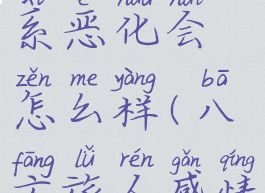 系恶化会
zěn me yàng bā
怎么样(八
fāng lǚ rén gǎn qíng
方旅人感情